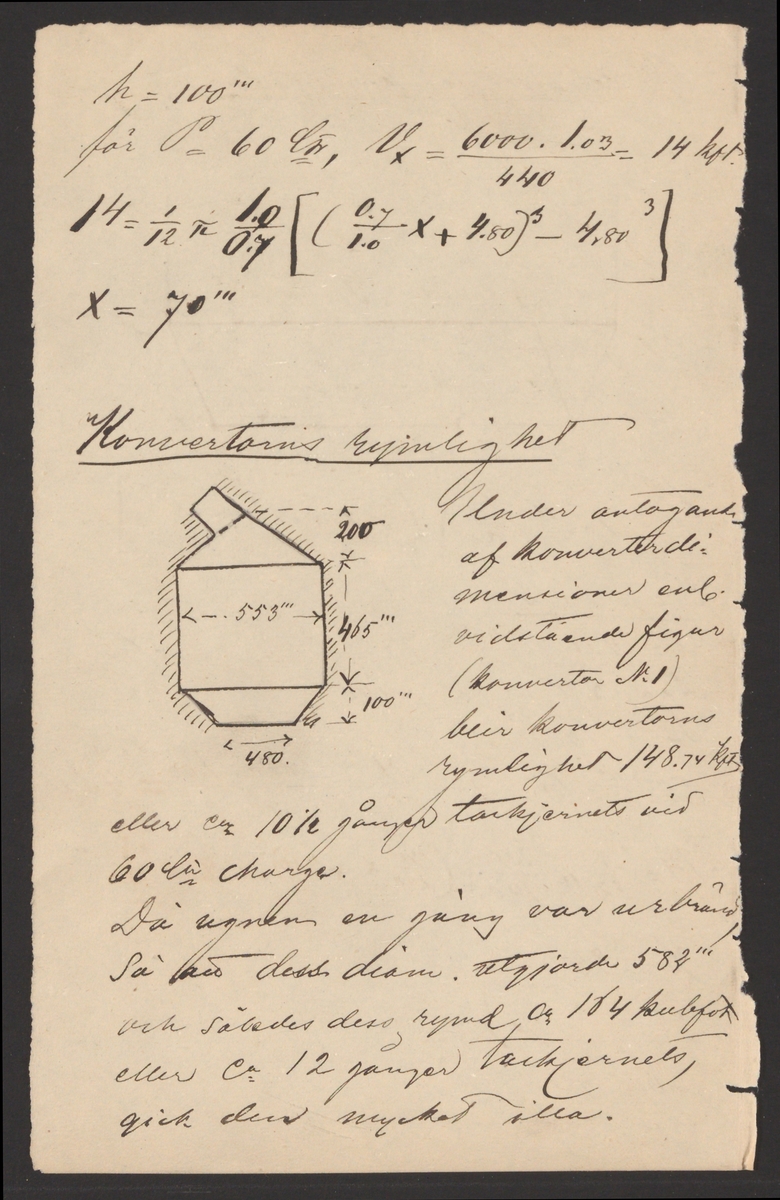 h = 100'''
för P = 60 Ctr, Vx = 6000. 1.03 / 440 = 14 kft.
14 = 1/12 π 1.0/0.7 [(0.7/1.0 x + 4.80)³ – 4.80³]
x = 70'''
Konvertorns rymlighet
200
553'''
465'''
100'''
480.
Under antagande
af konverterdi-
mensioner enl.
vidstående figur
(konvertor N.1)
blir konvertorns
rymlighet 148.74 kft
eller ca 10½ gånger tackjernets vid
60 Ctr charge.
Då ugnen en gång var urbränd,
så att dess diam. utgjorde 582'''
och således dess rymd ca 164 kubfot
eller ca 12 gånger tackjernets,
gick den mycket illa.